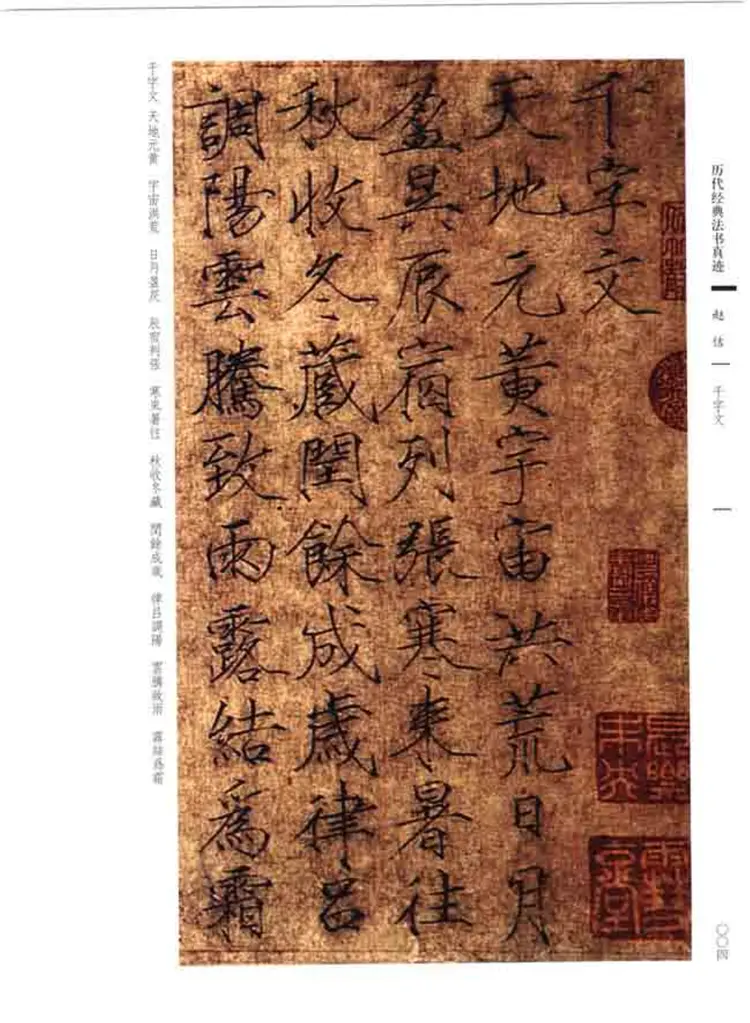 历代经典法书真迹
赵佶
千字文
〇〇四
千字文
天地元黃宇宙洪荒日月
盈昃辰宿列張寒来暑往
秋收冬藏閏餘成歲律呂
調陽雲騰致雨露結爲霜
千字文 天地元黄 宇宙洪荒 日月盈昃 辰宿列張 寒来暑往 秋收冬藏 閏餘成歲 律吕調陽 雲騰致雨 露結爲霜